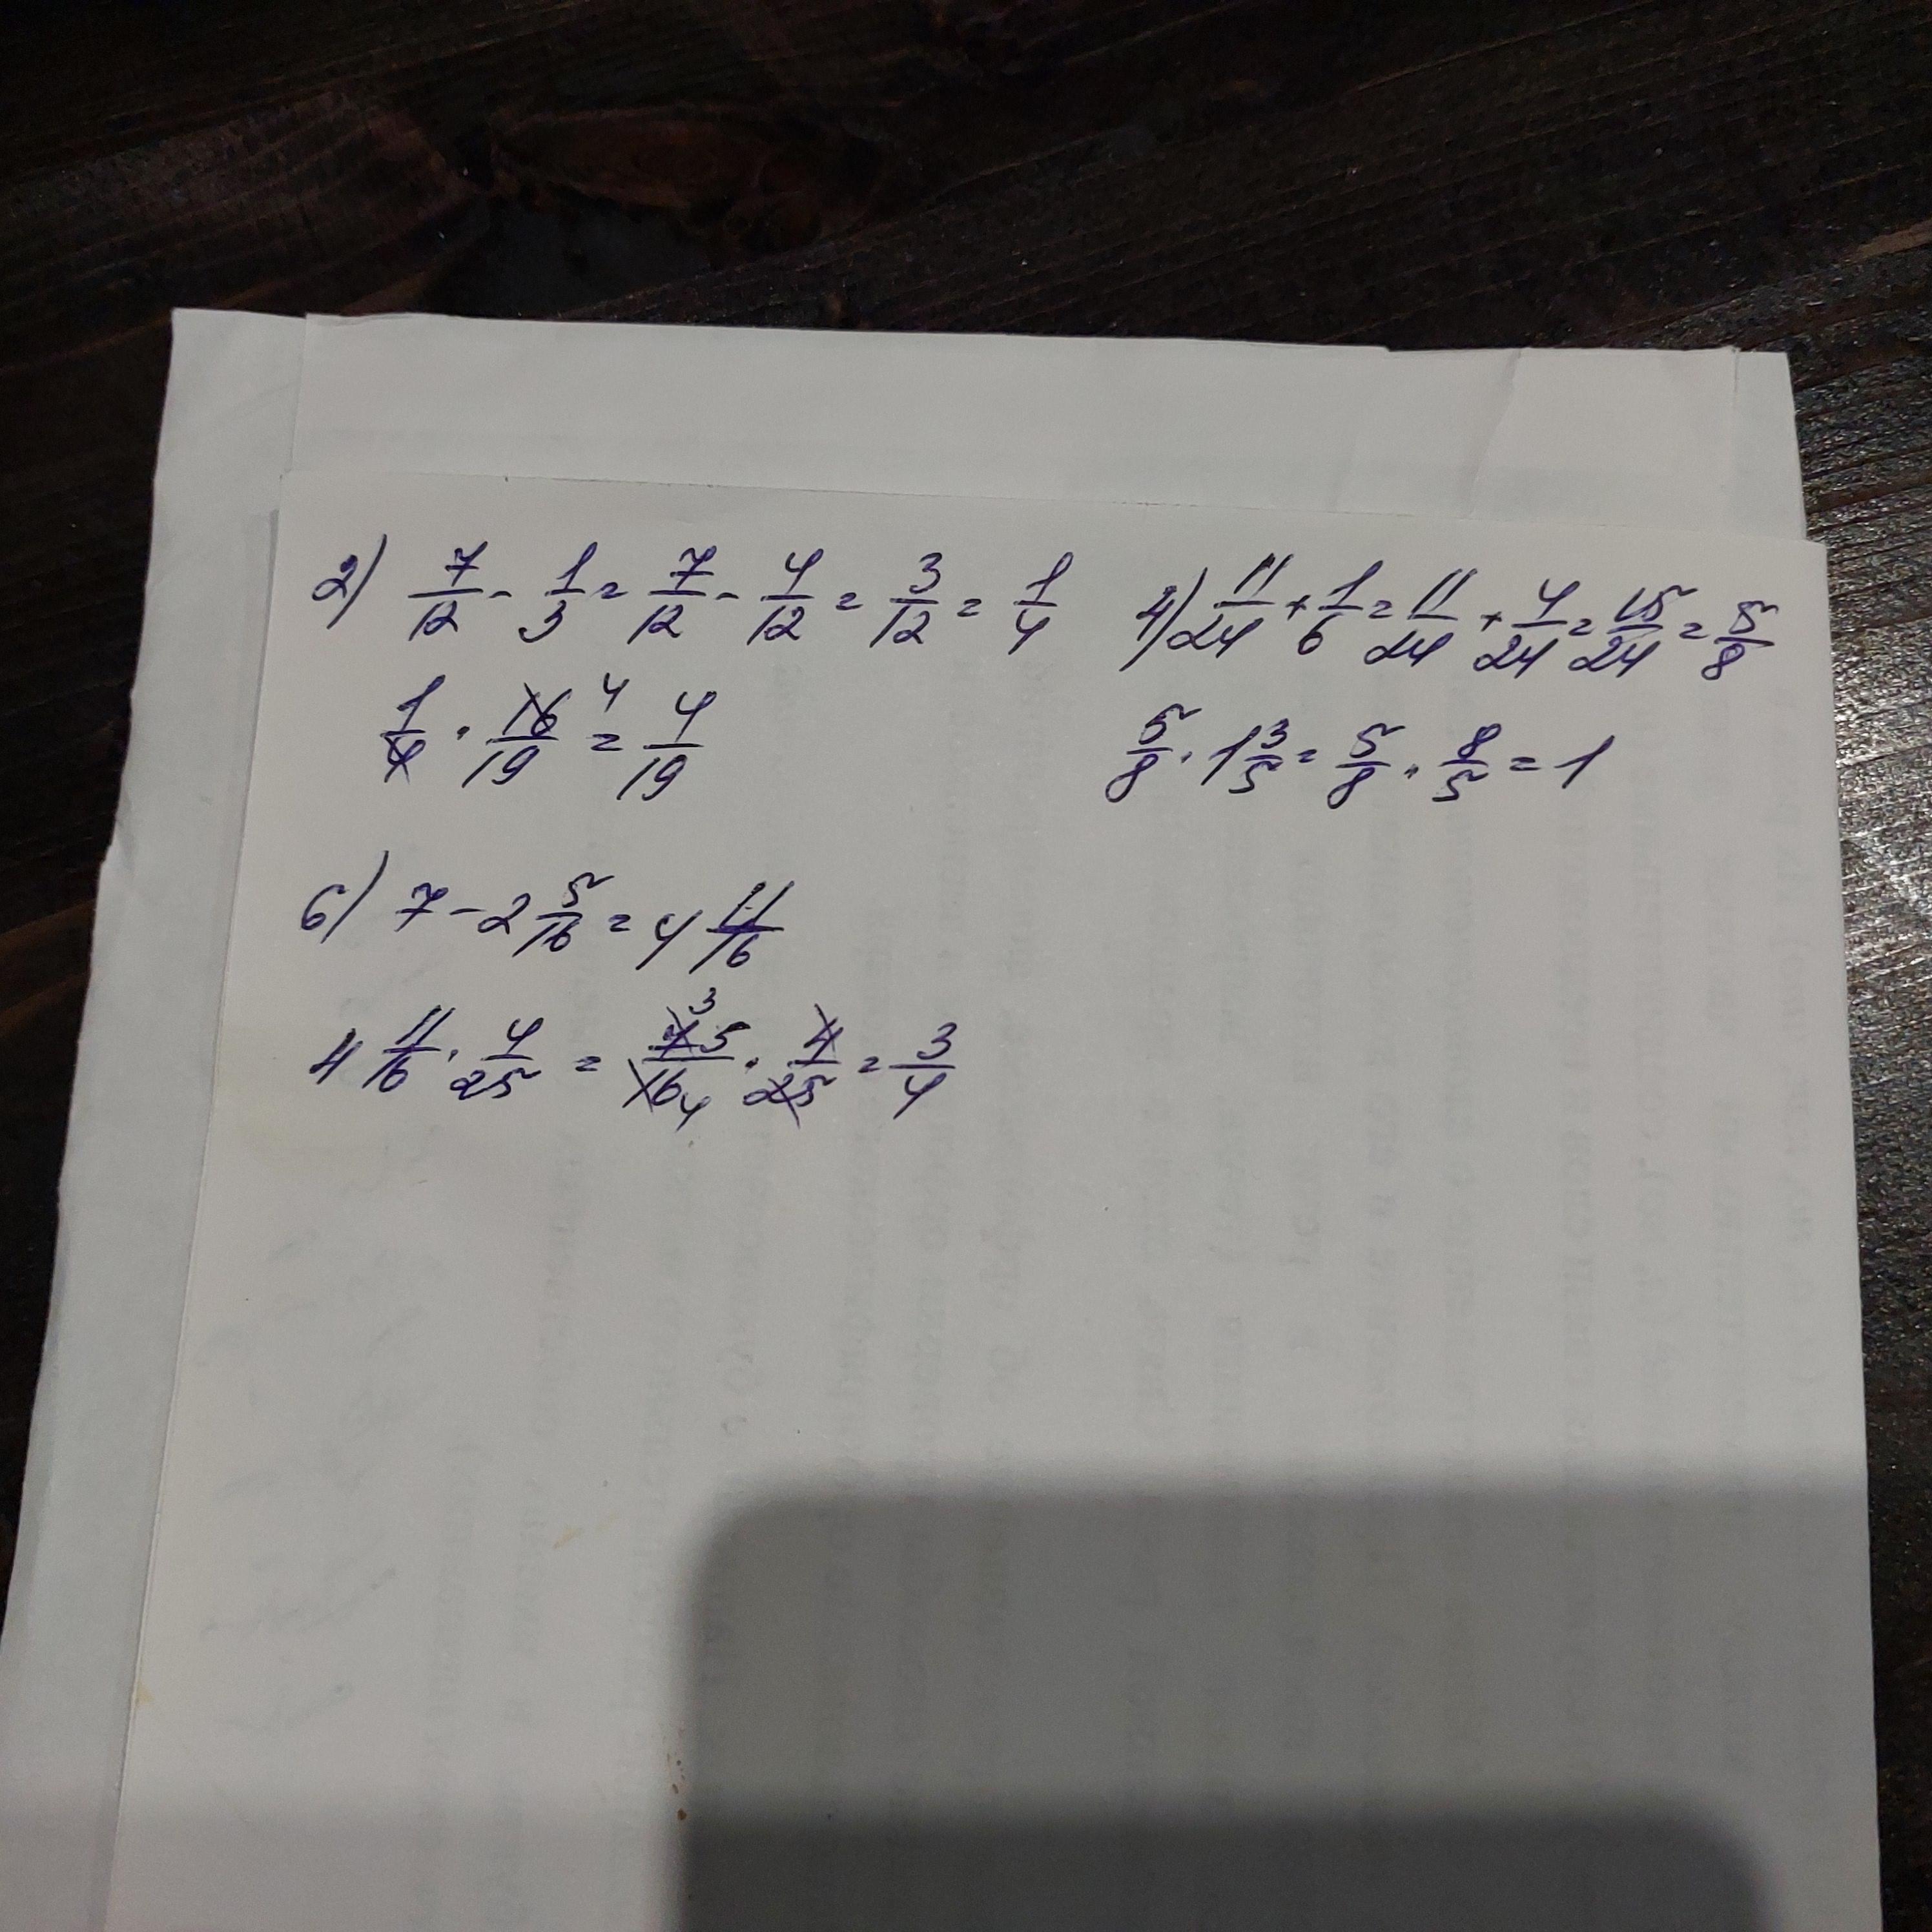 2) 7/12 - 1/3 = 7/12 - 4/12 = 3/12 = 1/4
1/4 · 16/19 4 = 4/19
4) 11/24 + 1/6 = 11/24 + 4/24 = 15/24 = 5/8
5/8 · 1 3/5 = 5/8 · 8/5 = 1
6) 7 - 2 5/16 = 4 11/16
4 11/16 · 4/25 = 75/16 3 4 · 4/25 = 3/4